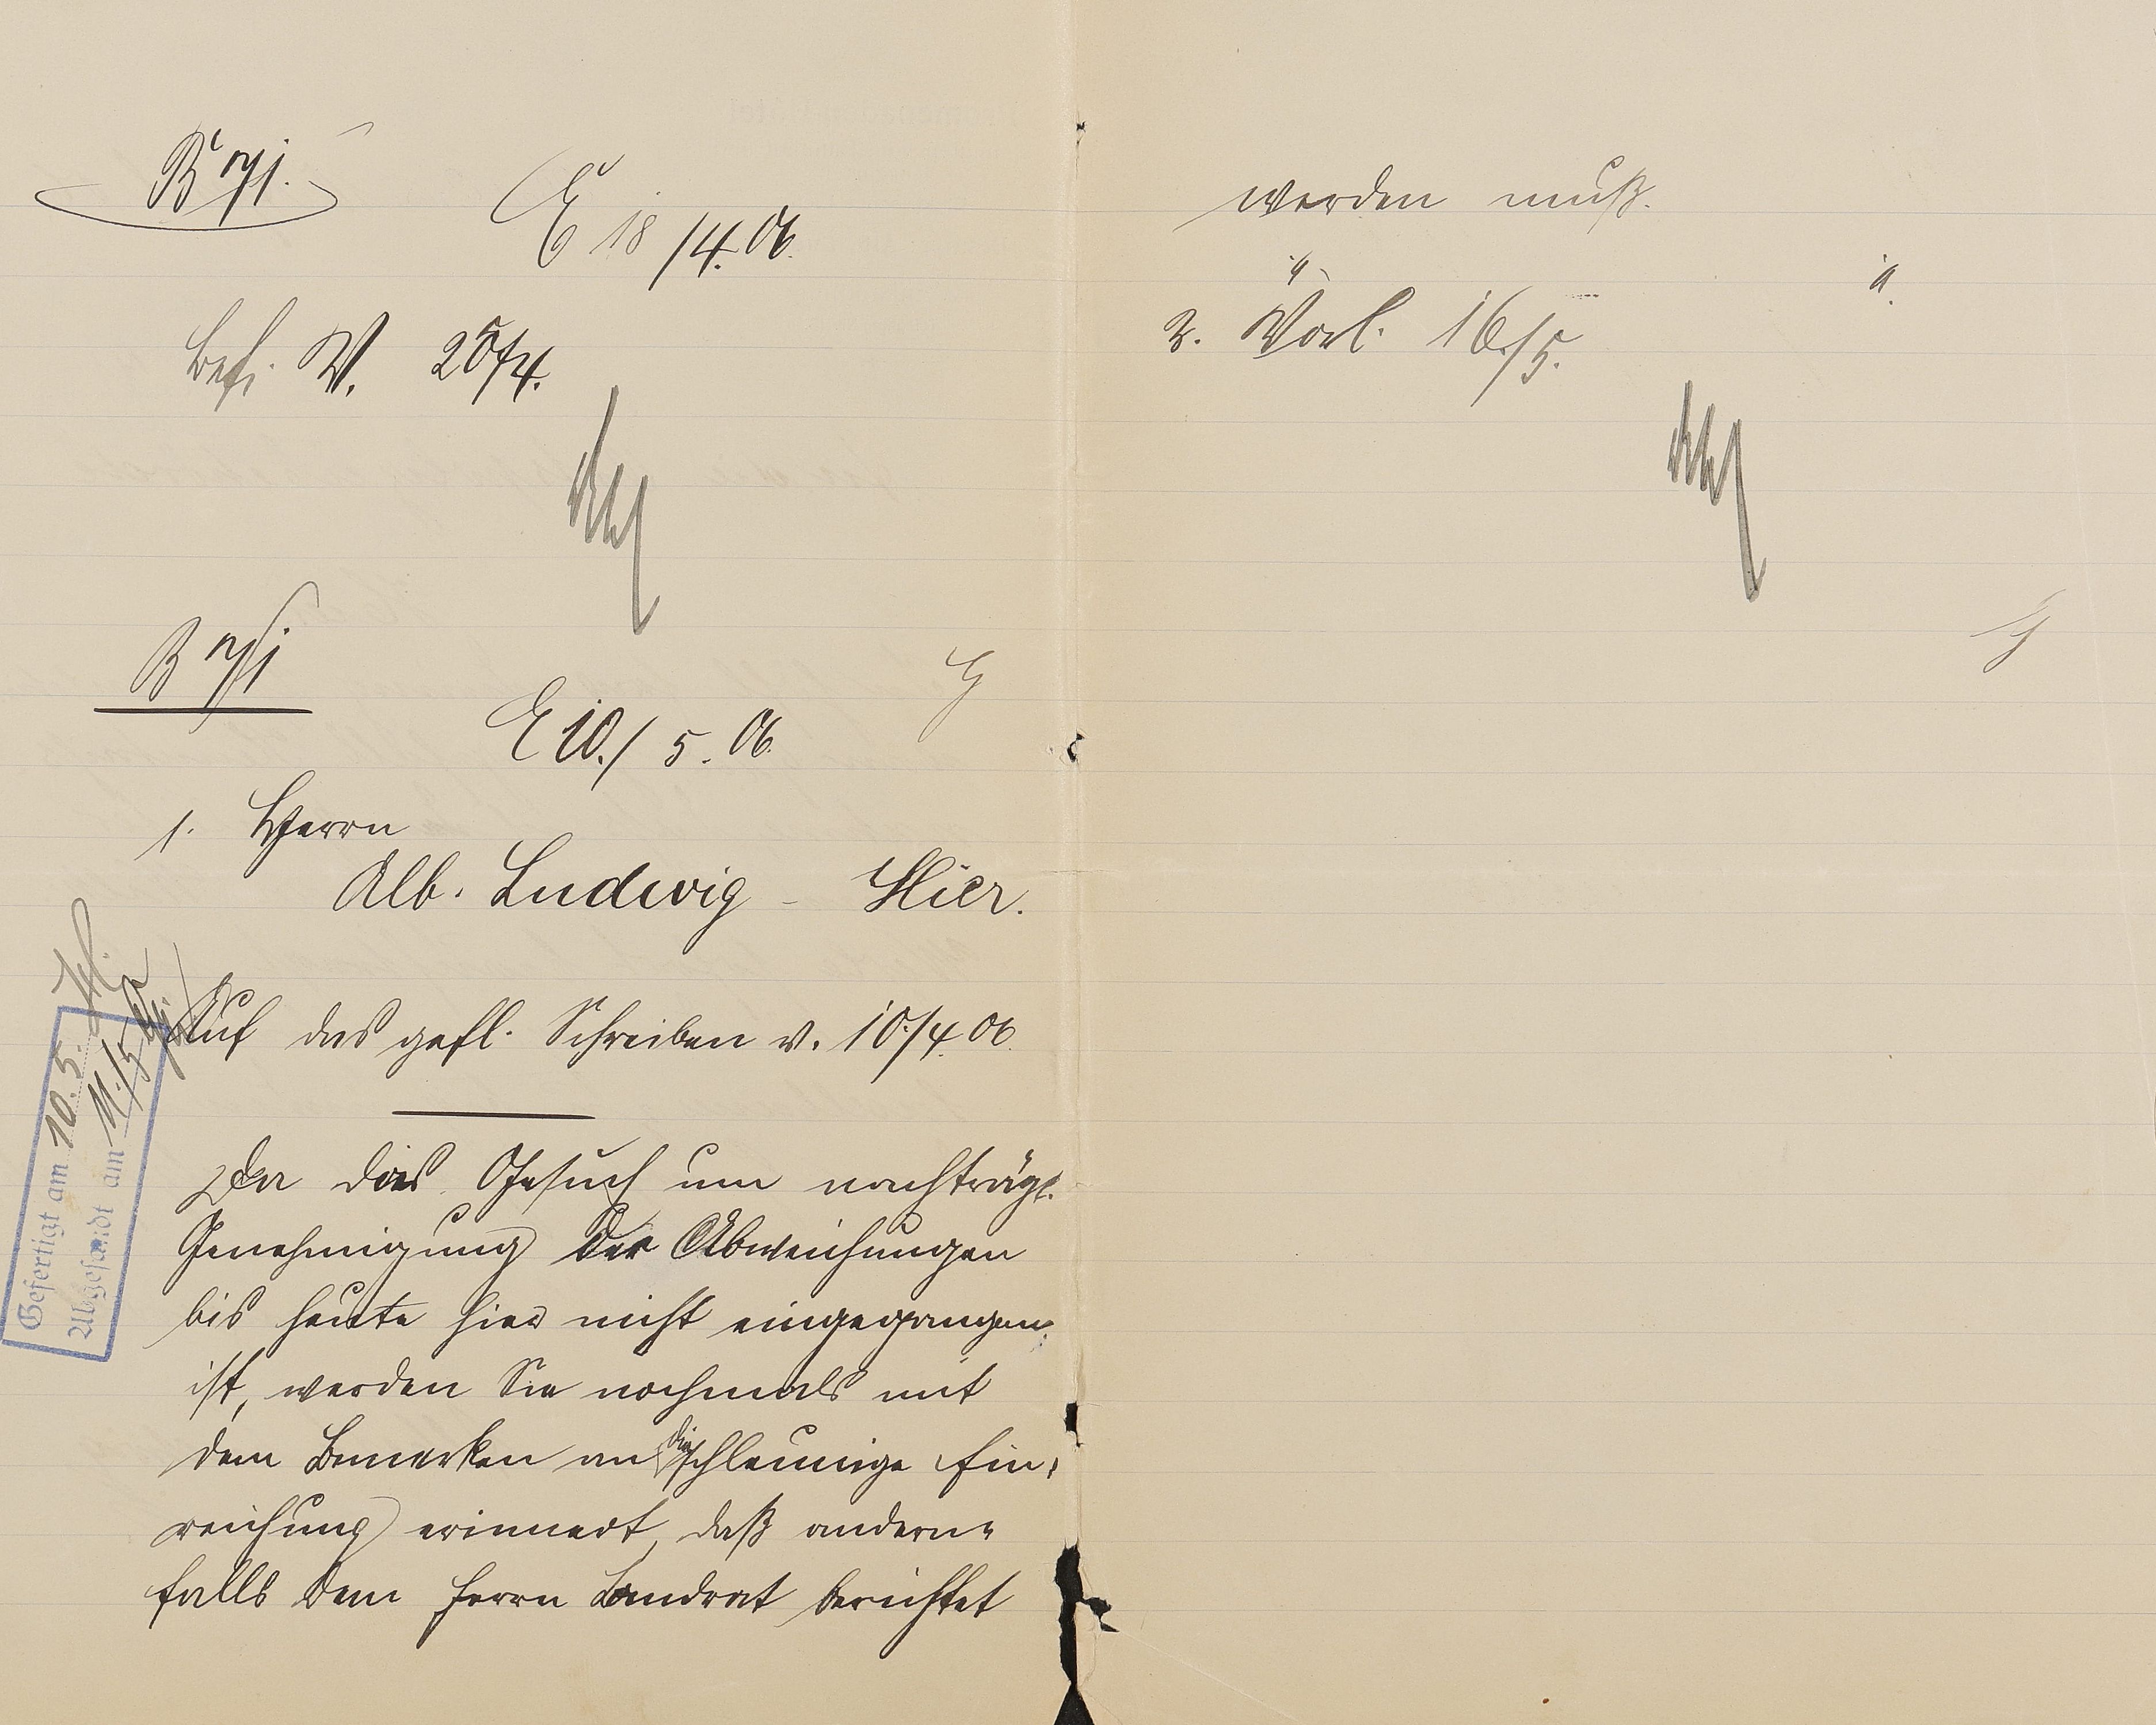 E 18/4. 06.
W. 25/4.
E 10./5. 06.
1. Herrn
Alb. Ludwig - Hier.
Auf das gefl. Schreiben v. 10./4. 06.
Da das Gesuch um nachträgl.
Genehmigung der Abweichungen
bis heute hier nicht eingegangen
ist, werden Sie nochmals mit
dem Bemerken an die schleunige Ein-
reichung erinnert, daß andern-
falls dem Herrn Landrat berichtet
Gefertigt am 10. 5.
Abgesandt am 11./5
werden muß.
2. Vorl. 16./5.